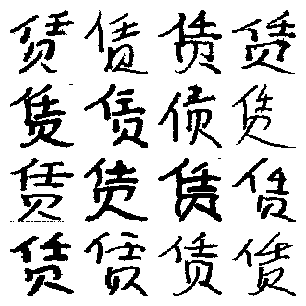 赁赁赁赁
赁赁赁赁
赁赁赁赁
赁赁赁赁